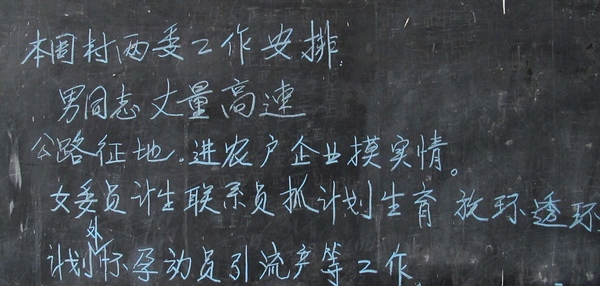 本周村两委工作安排
男同志丈量高速
公路征地。进农户企业摸实情。
女委员计生联系员抓计划生育 放环透环
计划外怀孕动员引流产等工作